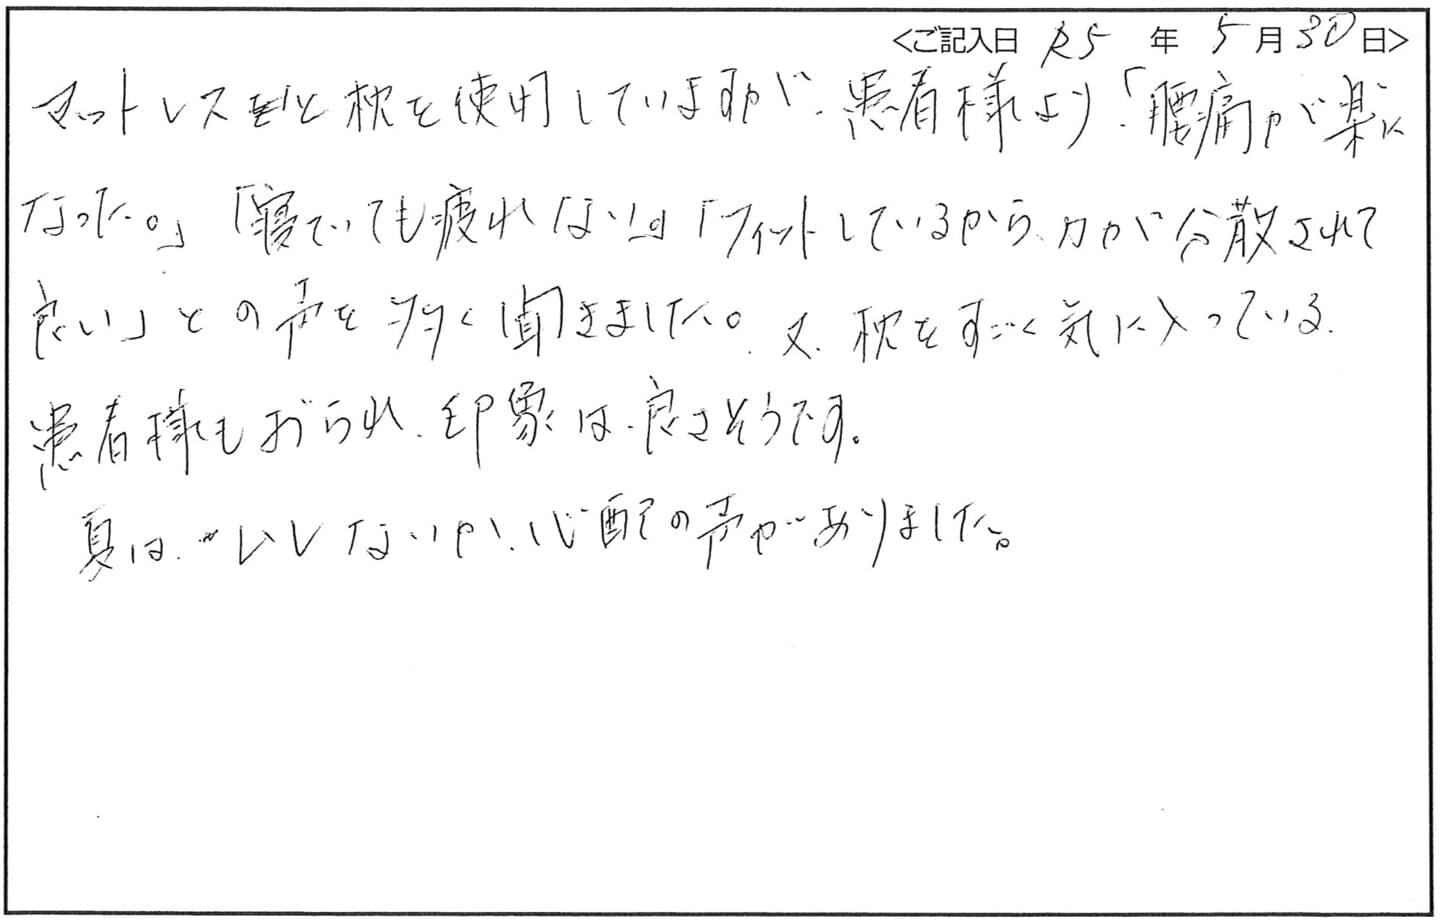 <ご記入日 R5 年 5月30日>
マットレスと枕を使用していますが、患者様より「腰痛が楽に
なった。」「寝ていても疲れない」「フィットしているから、力が分散されて
良い」との声を多く聞きました。又、枕をすごく気に入っている
患者様もおられ、印象は良さそうです。
夏は、ムレないか、心配の声がありました。